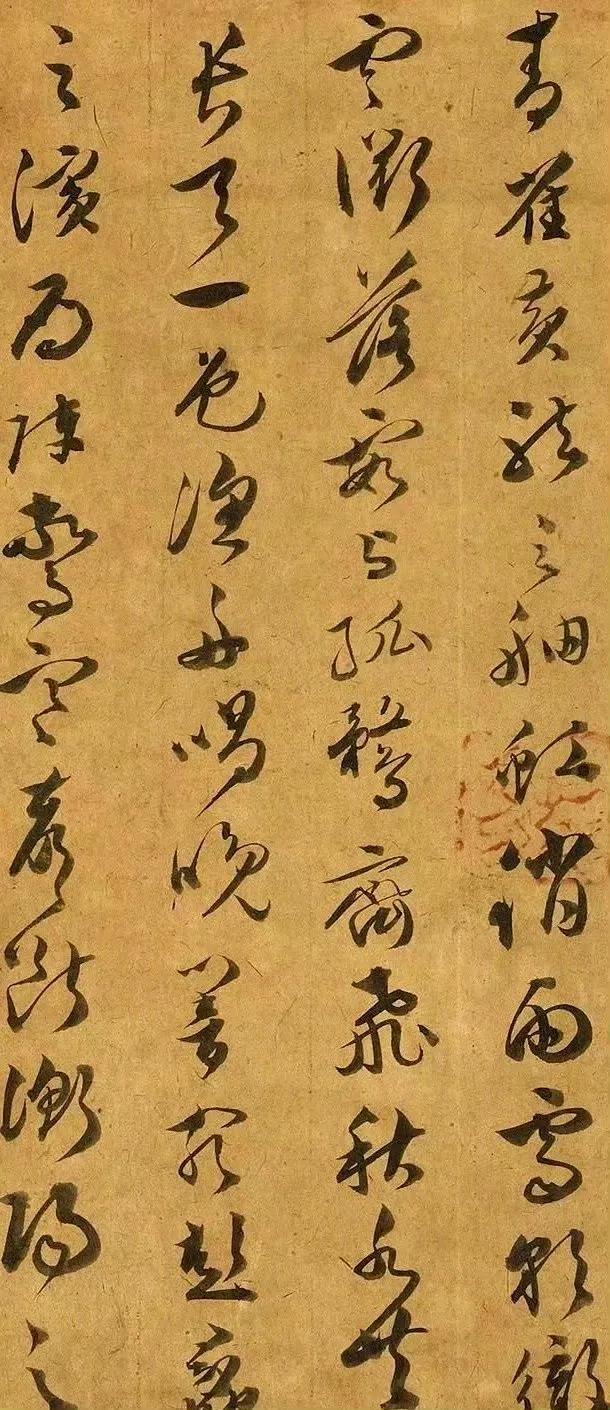 青雀黄龍之舳虹銷雨霽彩徹
雲衢落霞与孤鶩齊飛秋水共
長天一色漁舟唱晚響窮彭蠡
之濱雁陣驚寒聲斷衡陽之